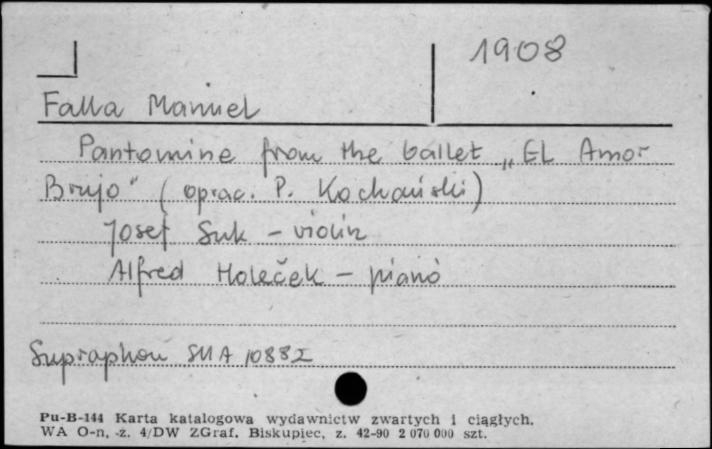 1908
Falla Manuel
Pantomine from the ballet „EL Amor
Brujo" (oprac. P. Kochański)
Josef Suk - violin
Alfred Holeček - piano
Supraphon SUA 10882
Pu-B-144 Karta katalogowa wydawnictw zwartych i ciągłych.
WA O-n, z. 4/DW ZGraf. Biskupiec, z. 42-90 2 070 000 szt.